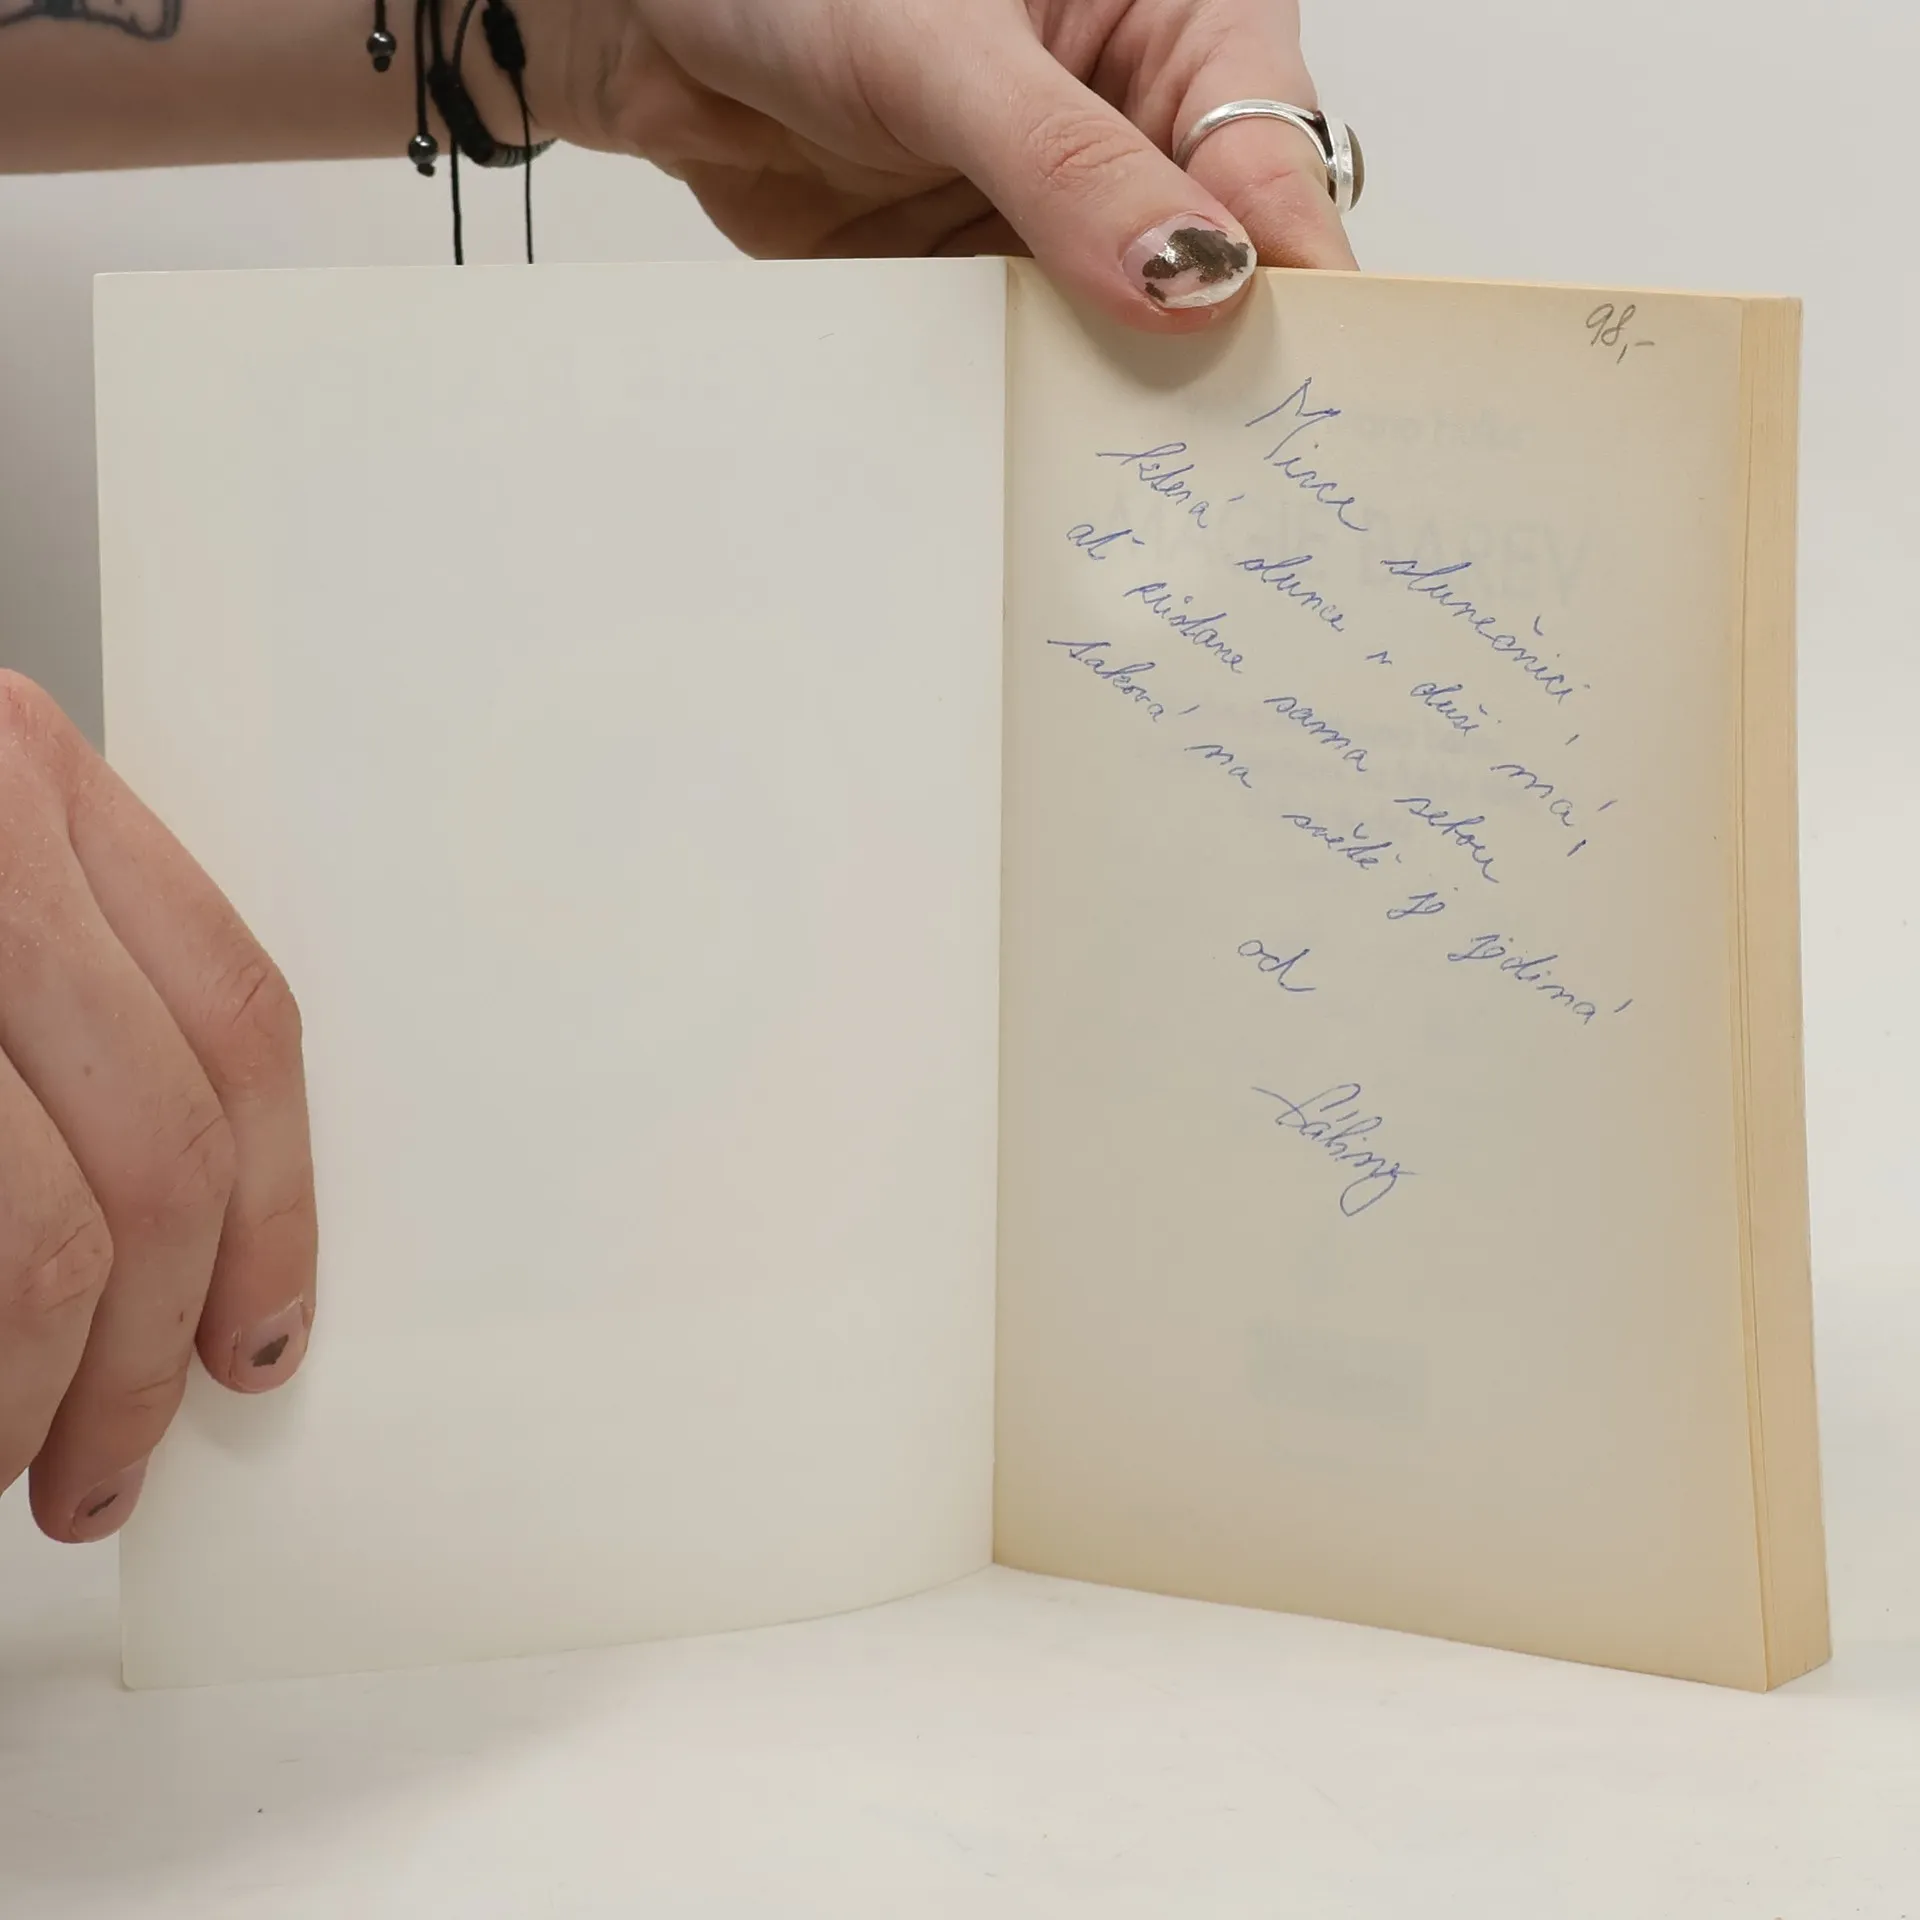 98,-
Mirce slunečnici,
která slunce v duši má,
ať zůstane sama sebou
taková na světě je jediná
od
Sábiny